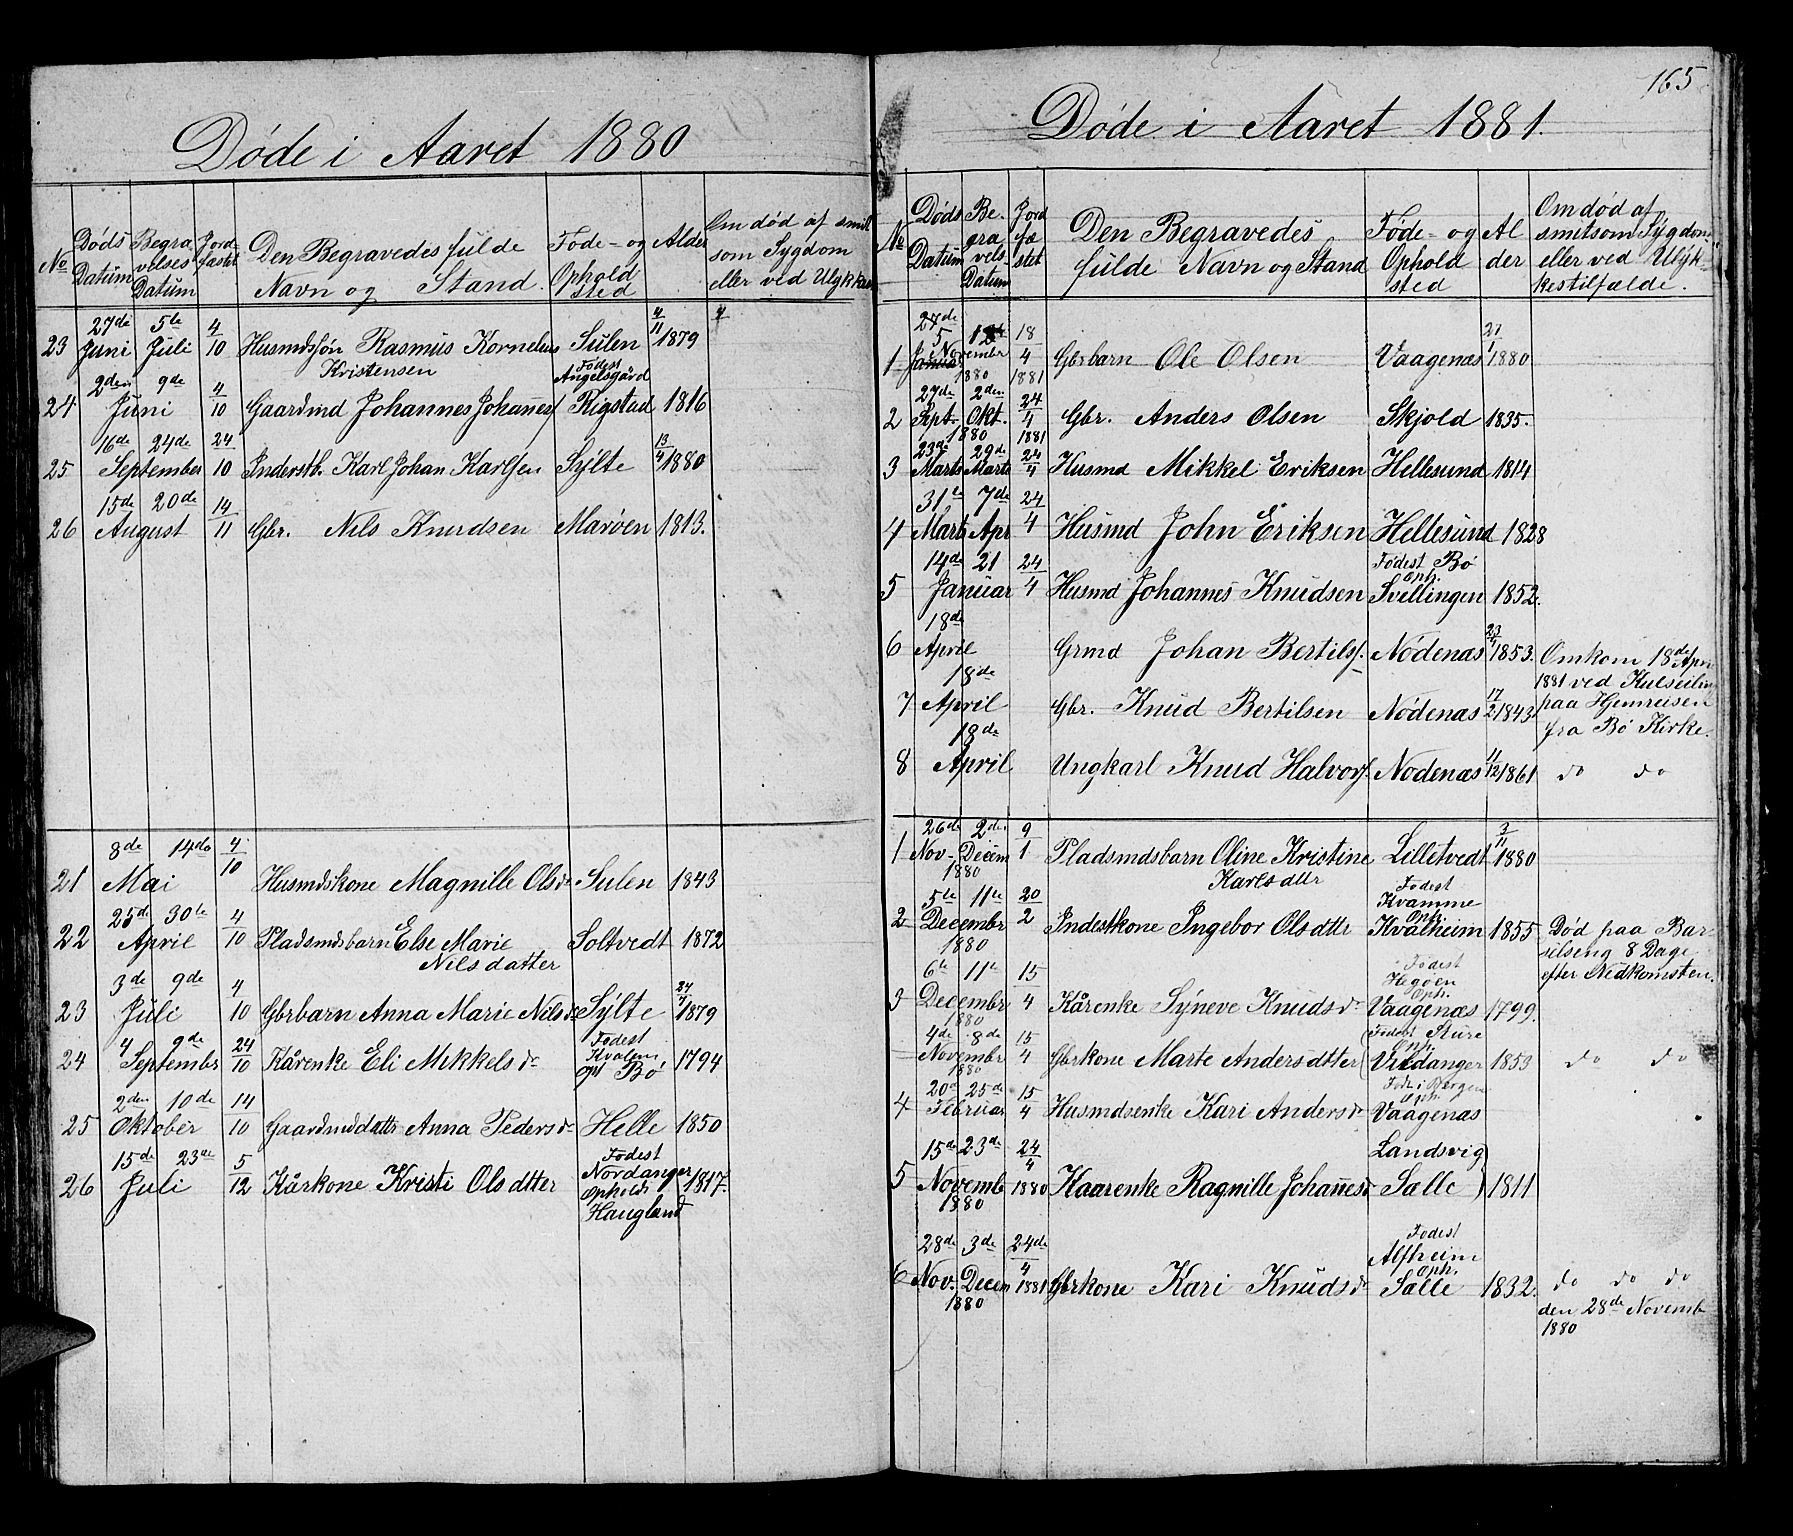 Døde i Aaret 1880
No Døds Datum Begravelses Datum Jordfæstet Den Begravedes fulde Navn og Stand. Føde- og Ophold sted Alder Om død af smitsom Sygdom eller ved Ulykke
23 27de Juni 5te Juli 4/10 Husmdssøn Rasmus Kornelius Kristensen Sulen 4/11 1879
24 2den Juni 9de 4/10 Gaardmd Johannes Johanness Fødest Angelsgård Rigstad 1816
25 16de September 24de 24/10 Inderstb. Karl Johan Karlsen Sylte 13/4 1880
26 15de August 20de 14/11 Gbr. Nils Knudsen Marøen 1813.
21 8de Mai 14de 4/10 Husmdskone Magnille Olsdr Sulen 1843
22 25de April 30te 4/10 Pladsmdsbarn Else Marie Nilsdatter Soltvedt 1872
23 3de Juli 9de 4/10 Gbrbarn Anna Marie Nilsdr Sylte 24/4 1879
24 4 September 9de 24/10 Kårenke Eli Mikkelsdr Fødest Kvalem oph Bø 1794
25 2den Oktober 10de 14/10 Gaardmddattr Anna Pedersdr Helle 1850
26 15de Juli 23de 5/12 Kårkone Kristi Olsdtter Fødest Nordanger Opholds Haugland 1817.
165
Døde i Aaret 1881.
No Døds Datum Begravels Datum Jordfæstet Den Begravedes fulde Navn og Stand Føde- og Ophold sted Alder Om død af smitsom Sygdom eller ved Ulykkestilfælde.
1 27de 5 Januar 12de November 1880 18/4 1881 Gbrbarn Ole Olsen Vaagenæs 27/1 1880
2 27de Sept. 2den Okt. 1880 24/4 1881 Gbr. Anders Olsen Skjold 1835.
3 23de Marts 29de Marts 24/4 Husmd Mikkel Eriksen Hellesund 1814
4 31te Marts 7de Apr 24/4 Husmd John Eriksen Hellesund 1828
5 14de 21 Januar 24/4 Husmd Johannes Knudsen Fødest Bø oph. Svellingen 1852.
6 18de April Grmd Johan Bertilss. Nødenæs 23/4 1853. Omkom 18de Apri
7 18de April Gbr. Knud Bertilsen Nødenæs 17/2 1843 1881 ved Kulseiling paa Hjemreisen fra Bø Kirke.
8 18de April Ungkarl Knud Halvors. Nødenæs 4/12 1861 do do
1 26de Nov- 2den Decem 1880 9/1 Pladsmdsbarn Oline Kristine Karlsdttr Lilletvedt 3/11 1880
2 5te 11te Decembr 1880 20/2 Indestkone Ingebor Olsdttr Fødest Kvamme Oph. Kvalheim 1855 Død paa Barselseng 8 Dage efter Nedkomsten.
3 6te 11te Decembr 1880 15/4 Kårenke Syneve Knudsdr Fødest Hegøen Oph. Vaagenæs 1799.
4de 8de Novembr 1880 15/4 Gbrkone Marte Andersdtter Fødest Sture Oph. Vildanger 1853 do do
4 20de 25de Februar 15/4 Husmdsenke Kari Andersdr Føde i Bergen Oph. Vaagenæs
5 15de 23de Novemb 1880 24/4 1880 Kaarenke Ragnille Johannesdr Landsvig Sælle 1811
6 28de Nov. 3de Decem 1880 24de/4 1881 Gbrkone Kari Knudsdr Fødest Alfheim Oph. Sælle 1832. do do do
den 28de Novemb 1880